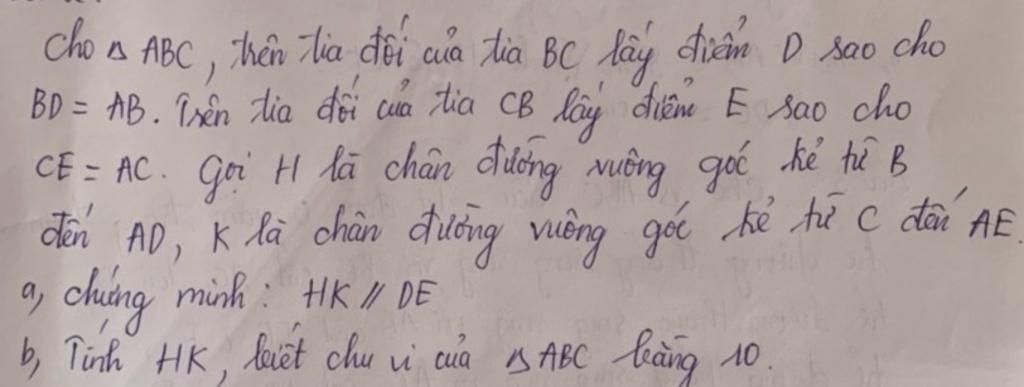 Cho Δ ABC, trên tia đối của tia BC lấy điểm D sao cho
BD = AB. Trên tia đối của tia CB lấy điểm E sao cho
CE = AC. Gọi H là chân đường vuông góc kẻ từ B
đến AD, K là chân đường vuông góc kẻ từ C đến AE.
a, chứng minh: HK // DE
b, Tính HK, biết chu vi của Δ ABC bằng 10.